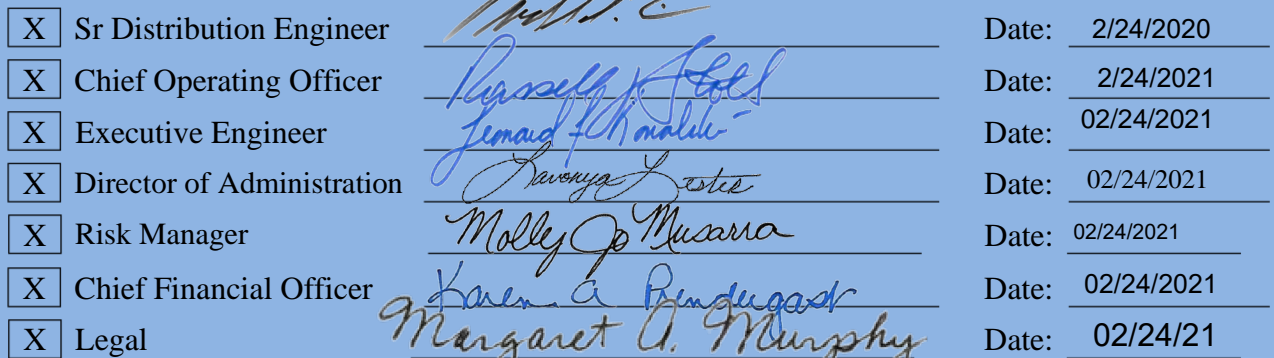 X Sr Distribution Engineer Date: 2/24/2020
X Chief Operating Officer Russell J. Date: 2/24/2021
X Executive Engineer Leonard F Date: 02/24/2021
X Director of Administration Lavonya Lester Date: 02/24/2021
X Risk Manager Molly Jo Musarra Date: 02/24/2021
X Chief Financial Officer Karen A Prendergast Date: 02/24/2021
X Legal Margaret A. Murphy Date: 02/24/21